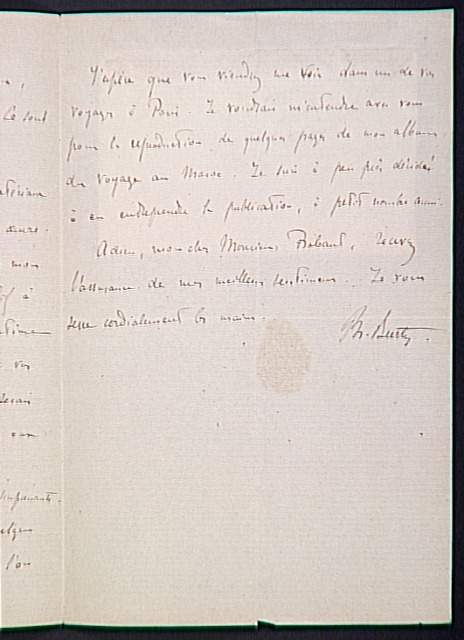 Ce sont
mon
à
vos
l'on
J'espère que vous viendrez me voir dans un de vos
voyages à Paris. Je voudrais m'entendre avec vous
pour la reproduction de quelques pages de mon album
du voyage au Maroc. Je suis à peu près décidé
à en entreprendre la publication, à petit nombre
Adieu, mon cher Monsieur Ribaut, recevez
l'assurance de mes meilleurs sentiments. Je vous
serre cordialement les mains.
Ph. Burty.